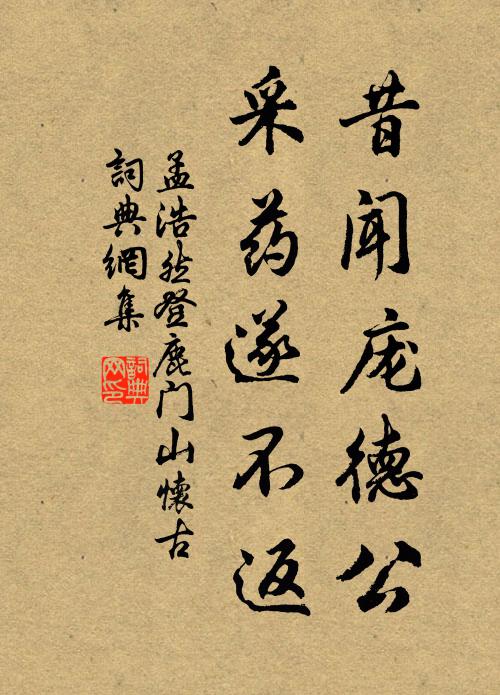 昔闻庞德公
采药遂不返
孟浩然登鹿门山懷古
詞典網集
詞典网印